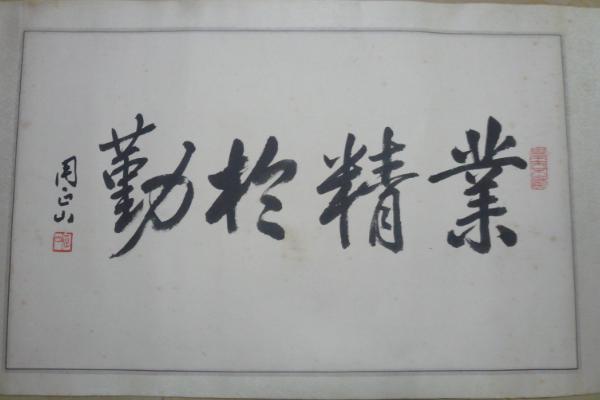 業精於勤
周正山